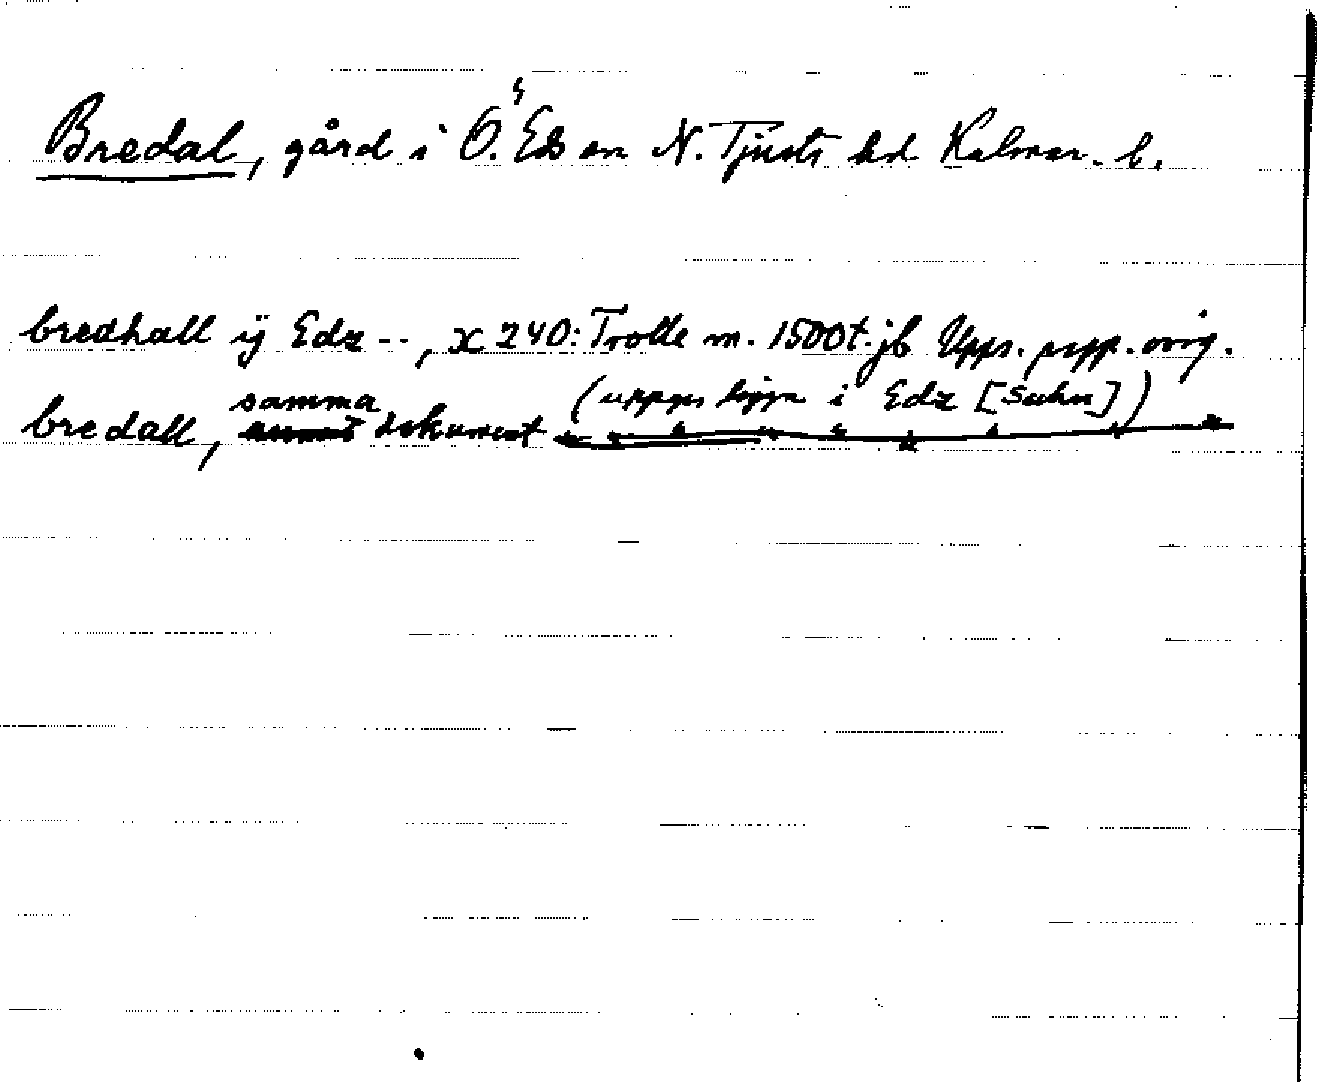 Bredal, gård i Ö. Eds sn N. Tjusts hd Kalmar. l.
bredhall ÿ Edz --, x 240: Trolle m. 1500t. jb Upps. papp. orig.
bredall, samma dokument (uppges ligga i Edz [Sukn])